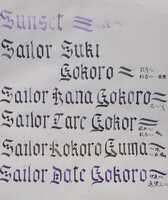 Sunset
Sailor Suki
Gokoro
Sailor Hana Gokoro
Sailor Tare Gokor
Sailor Kokoro Guma
Sailor Dote Gokoro